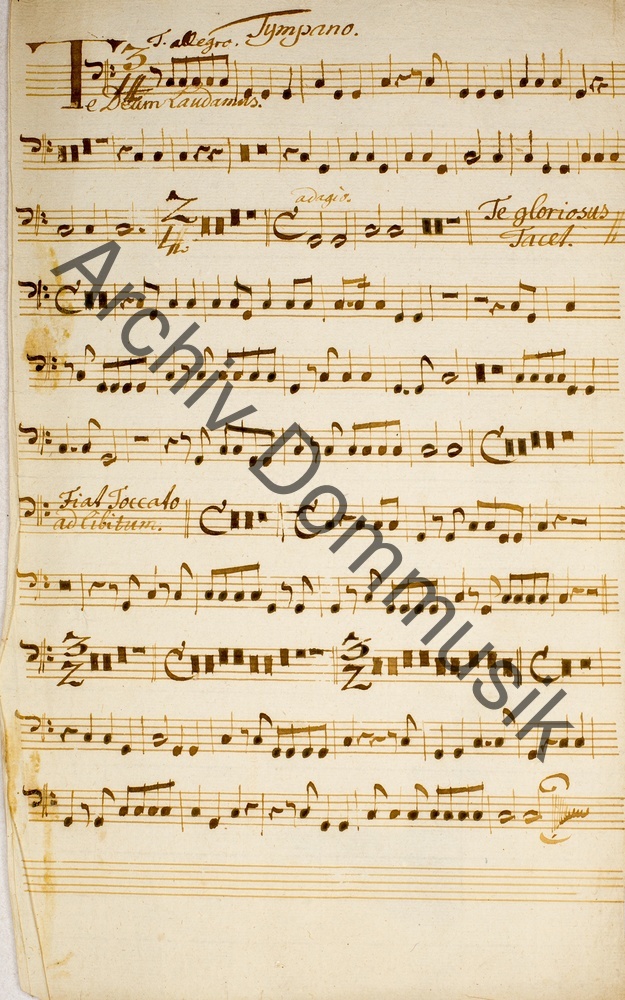 T. allegro. Tympano.
3
4
Te Deum Laudamus.
adagio.
2
4
C
Te gloriosus
Tacet.
C
C
Fiat Toccato
ad libitum.
C
C
3
2
C
3
2
C
Archiv Dommusik